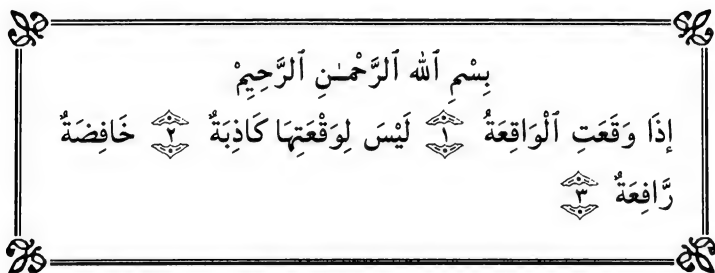 بِسْمِ ٱللهِ ٱلرَّحْمَـٰنِ ٱلرَّحِيمْ
إذَا وَقَعَتِ ٱلْوَاقِعَةُ ١ لَيْسَ لِوَقْعَتِهَا كَاذِبَةٌ ٢ خَافِضَةٌ
رَّافِعَةٌ ٣